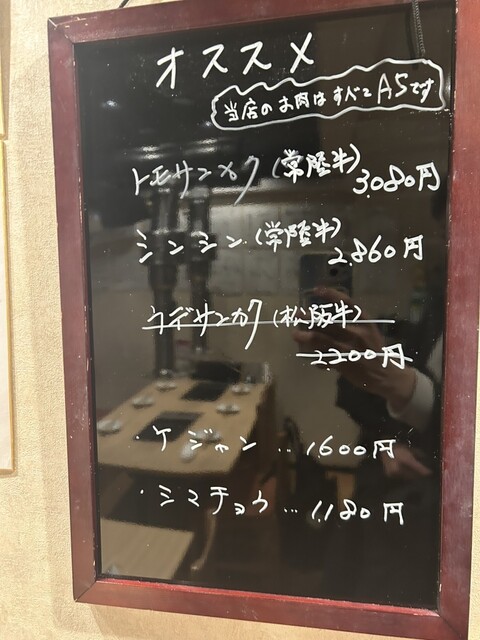 オススメ
当店のお肉はすべてA5です
トモサンカク(常陸牛)
3,080円
シンシン(常陸牛)
2,860円
ウデサンカク(松阪牛)
2,200円
・ケジャン…1600円
・シマチョウ…1,180円